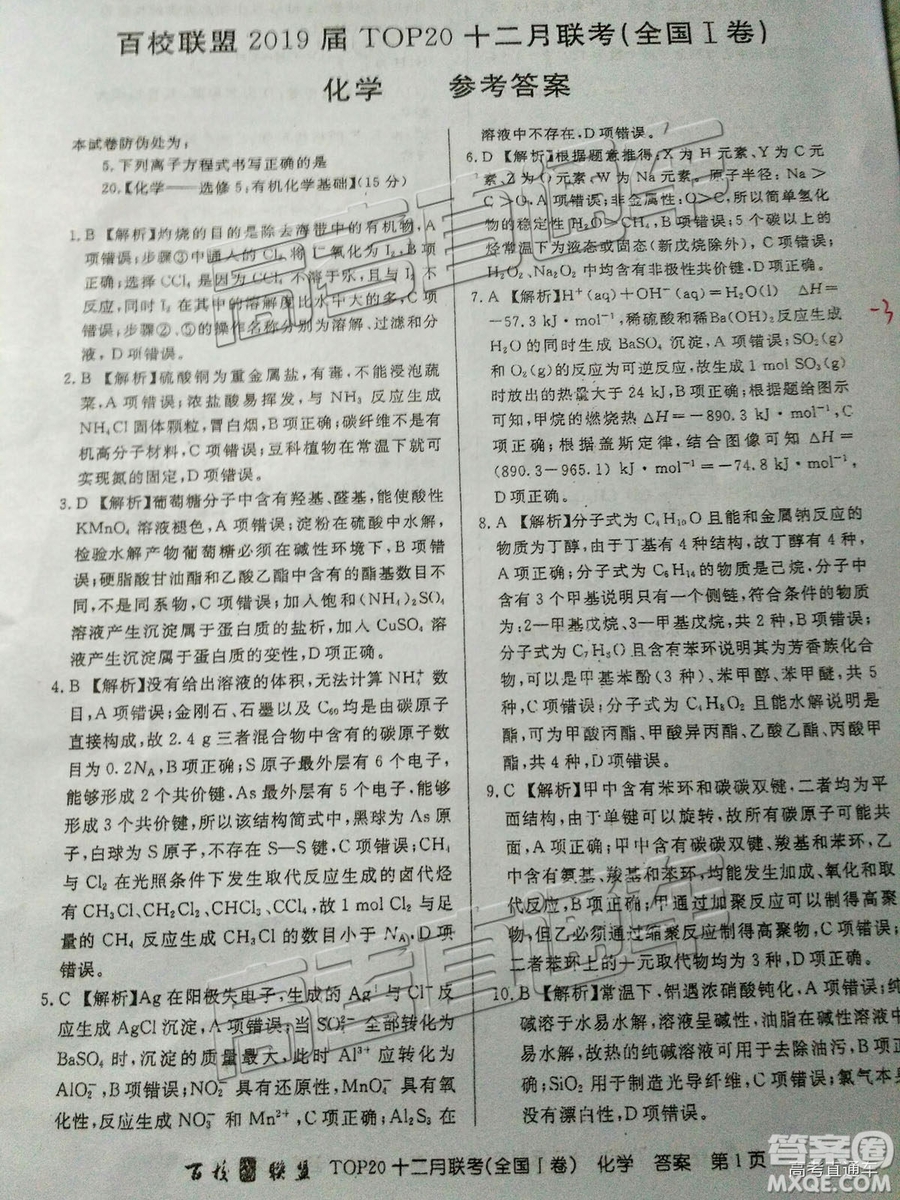 百校联盟 2019 届 TOP20 十二月联考(全国Ⅰ卷)
化学 参考答案
本试卷防伪处为:
5.下列离子方程式书写正确的是
20.【化学——选修5:有机化学基础】(15分)
1. B 【解析】灼烧的目的是除去海带中的有机物,A
项错误;步骤③中通入的 Cl₂ 将 I⁻ 氧化为 I₂,B 项
正确;选择 CCl₄ 是因为 CCl₄ 不溶于水,且与 I₂ 不
反应,同时 I₂ 在其中的溶解度比水中大的多,C 项
错误;步骤②、⑤的操作名称分别为溶解、过滤和分
液,D 项错误。
2. B 【解析】硫酸铜为重金属盐,有毒,不能浸泡蔬
菜,A 项错误;浓盐酸易挥发,与 NH₃ 反应生成
NH₄Cl 固体颗粒,冒白烟,B 项正确;碳纤维不是有
机高分子材料,C 项错误;豆科植物在常温下就可
实现氮的固定,D 项错误。
3. D 【解析】葡萄糖分子中含有羟基、醛基,能使酸性
KMnO₄ 溶液褪色,A 项错误;淀粉在硫酸中水解,
检验水解产物葡萄糖必须在碱性环境下,B 项错
误;硬脂酸甘油酯和乙酸乙酯中含有的酯基数目不
同,不是同系物,C 项错误;加入饱和(NH₄)₂SO₄
溶液产生沉淀属于蛋白质的盐析,加入 CuSO₄ 溶
液产生沉淀属于蛋白质的变性,D 项正确。
4. B 【解析】没有给出溶液的体积,无法计算 NH₄⁺ 数
目,A 项错误;金刚石、石墨以及 C₆₀ 均是由碳原子
直接构成,故 2.4 g 三者混合物中含有的碳原子数
目为 0.2Nₐ,B 项正确;S 原子最外层有 6 个电子,
能够形成 2 个共价键,As 最外层有 5 个电子,能够
形成 3 个共价键,所以该结构简式中,黑球为 As 原
子,白球为 S 原子,不存在 S—S 键,C 项错误;CH₄
与 Cl₂ 在光照条件下发生取代反应生成的卤代烃
有 CH₃Cl、CH₂Cl₂、CHCl₃、CCl₄,故 1 mol Cl₂ 与足
量的 CH₄ 反应生成 CH₃Cl 的数目小于 Nₐ,D 项
错误。
5. C 【解析】Ag 在阳极失电子,生成的 Ag⁺ 与 Cl⁻ 反
应生成 AgCl 沉淀,A 项错误;当 SO₄²⁻ 全部转化为
BaSO₄ 时,沉淀的质量最大,此时 Al³⁺ 应转化为
AlO₂⁻,B 项错误;NO₂⁻ 具有还原性,MnO₄⁻ 具有氧
化性,反应生成 NO₃⁻ 和 Mn²⁺,C 项正确;Al₂S₃ 在
溶液中不存在,D 项错误。
6. D 【解析】根据题意推得:X 为 H 元素、Y 为 C 元
素、Z 为 O 元素、W 为 Na 元素。原子半径:Na>
C>O,A 项错误;非金属性:O>C,所以简单氢化
物的稳定性 H₂O>CH₄,B 项错误;5 个碳以上的
烃常温下为液态或固态(新戊烷除外),C 项错误;
H₂O₂、Na₂O₂ 中均含有非极性共价键,D 项正确。
7. A 【解析】H⁺(aq)+OH⁻(aq)=H₂O(l) ΔH=
−57.3 kJ·mol⁻¹,稀硫酸和稀Ba(OH)₂反应生成
H₂O 的同时生成 BaSO₄ 沉淀,A 项错误;SO₂(g)
和 O₂(g)的反应为可逆反应,故生成 1 mol SO₃(g)
时放出的热量大于 24 kJ,B 项正确;根据题给图示
可知,甲烷的燃烧热 ΔH=−890.3 kJ·mol⁻¹,C
项正确;根据盖斯定律,结合图像可知 ΔH=
(890.3−965.1) kJ·mol⁻¹=−74.8 kJ·mol⁻¹,
D 项正确。
8. A 【解析】分子式为 C₄H₁₀O 且能和金属钠反应的
物质为丁醇,由于丁基有 4 种结构,故丁醇有 4 种,
A 项正确;分子式为 C₆H₁₄ 的物质是己烷,分子中
含有 3 个甲基说明只有一个侧链,符合条件的物质
为:2—甲基戊烷、3—甲基戊烷,共 2 种,B 项错误;
分子式为 C₇H₈O 且含有苯环说明其为芳香族化合
物,可以是甲基苯酚(3 种)、苯甲醇、苯甲醚,共 5
种,C 项错误;分子式为 C₄H₈O₂ 且能水解说明是
酯,可为甲酸丙酯、甲酸异丙酯、乙酸乙酯、丙酸甲
酯,共 4 种,D 项错误。
9. C 【解析】甲中含有苯环和碳碳双键,二者均为平
面结构,由于单键可以旋转,故所有碳原子可能共
面,A 项正确;甲中含有碳碳双键、羧基和苯环,乙
中含有氨基、羧基和苯环,均能发生加成、氧化和取
代反应,B 项正确;甲通过加聚反应可制得高聚
物,但乙必须通过缩聚反应制得高聚物,C 项错误;
二者苯环上的一元取代物均为 3 种,D 项正确。
10. B 【解析】常温下,铝遇浓硝酸钝化,A 项错误;纯
碱溶于水易水解,溶液呈碱性,油脂在碱性溶液中
易水解,故热的纯碱溶液可用于去除油污,B 项正
确;SiO₂ 用于制造光导纤维,C 项错误;氯气本身
没有漂白性,D 项错误。
-3
百校联盟 TOP20 十二月联考(全国Ⅰ卷) 化学 答案 第 1 页
高考直通车
高考直通车
答案圈
高考直通车
MXQE.COM